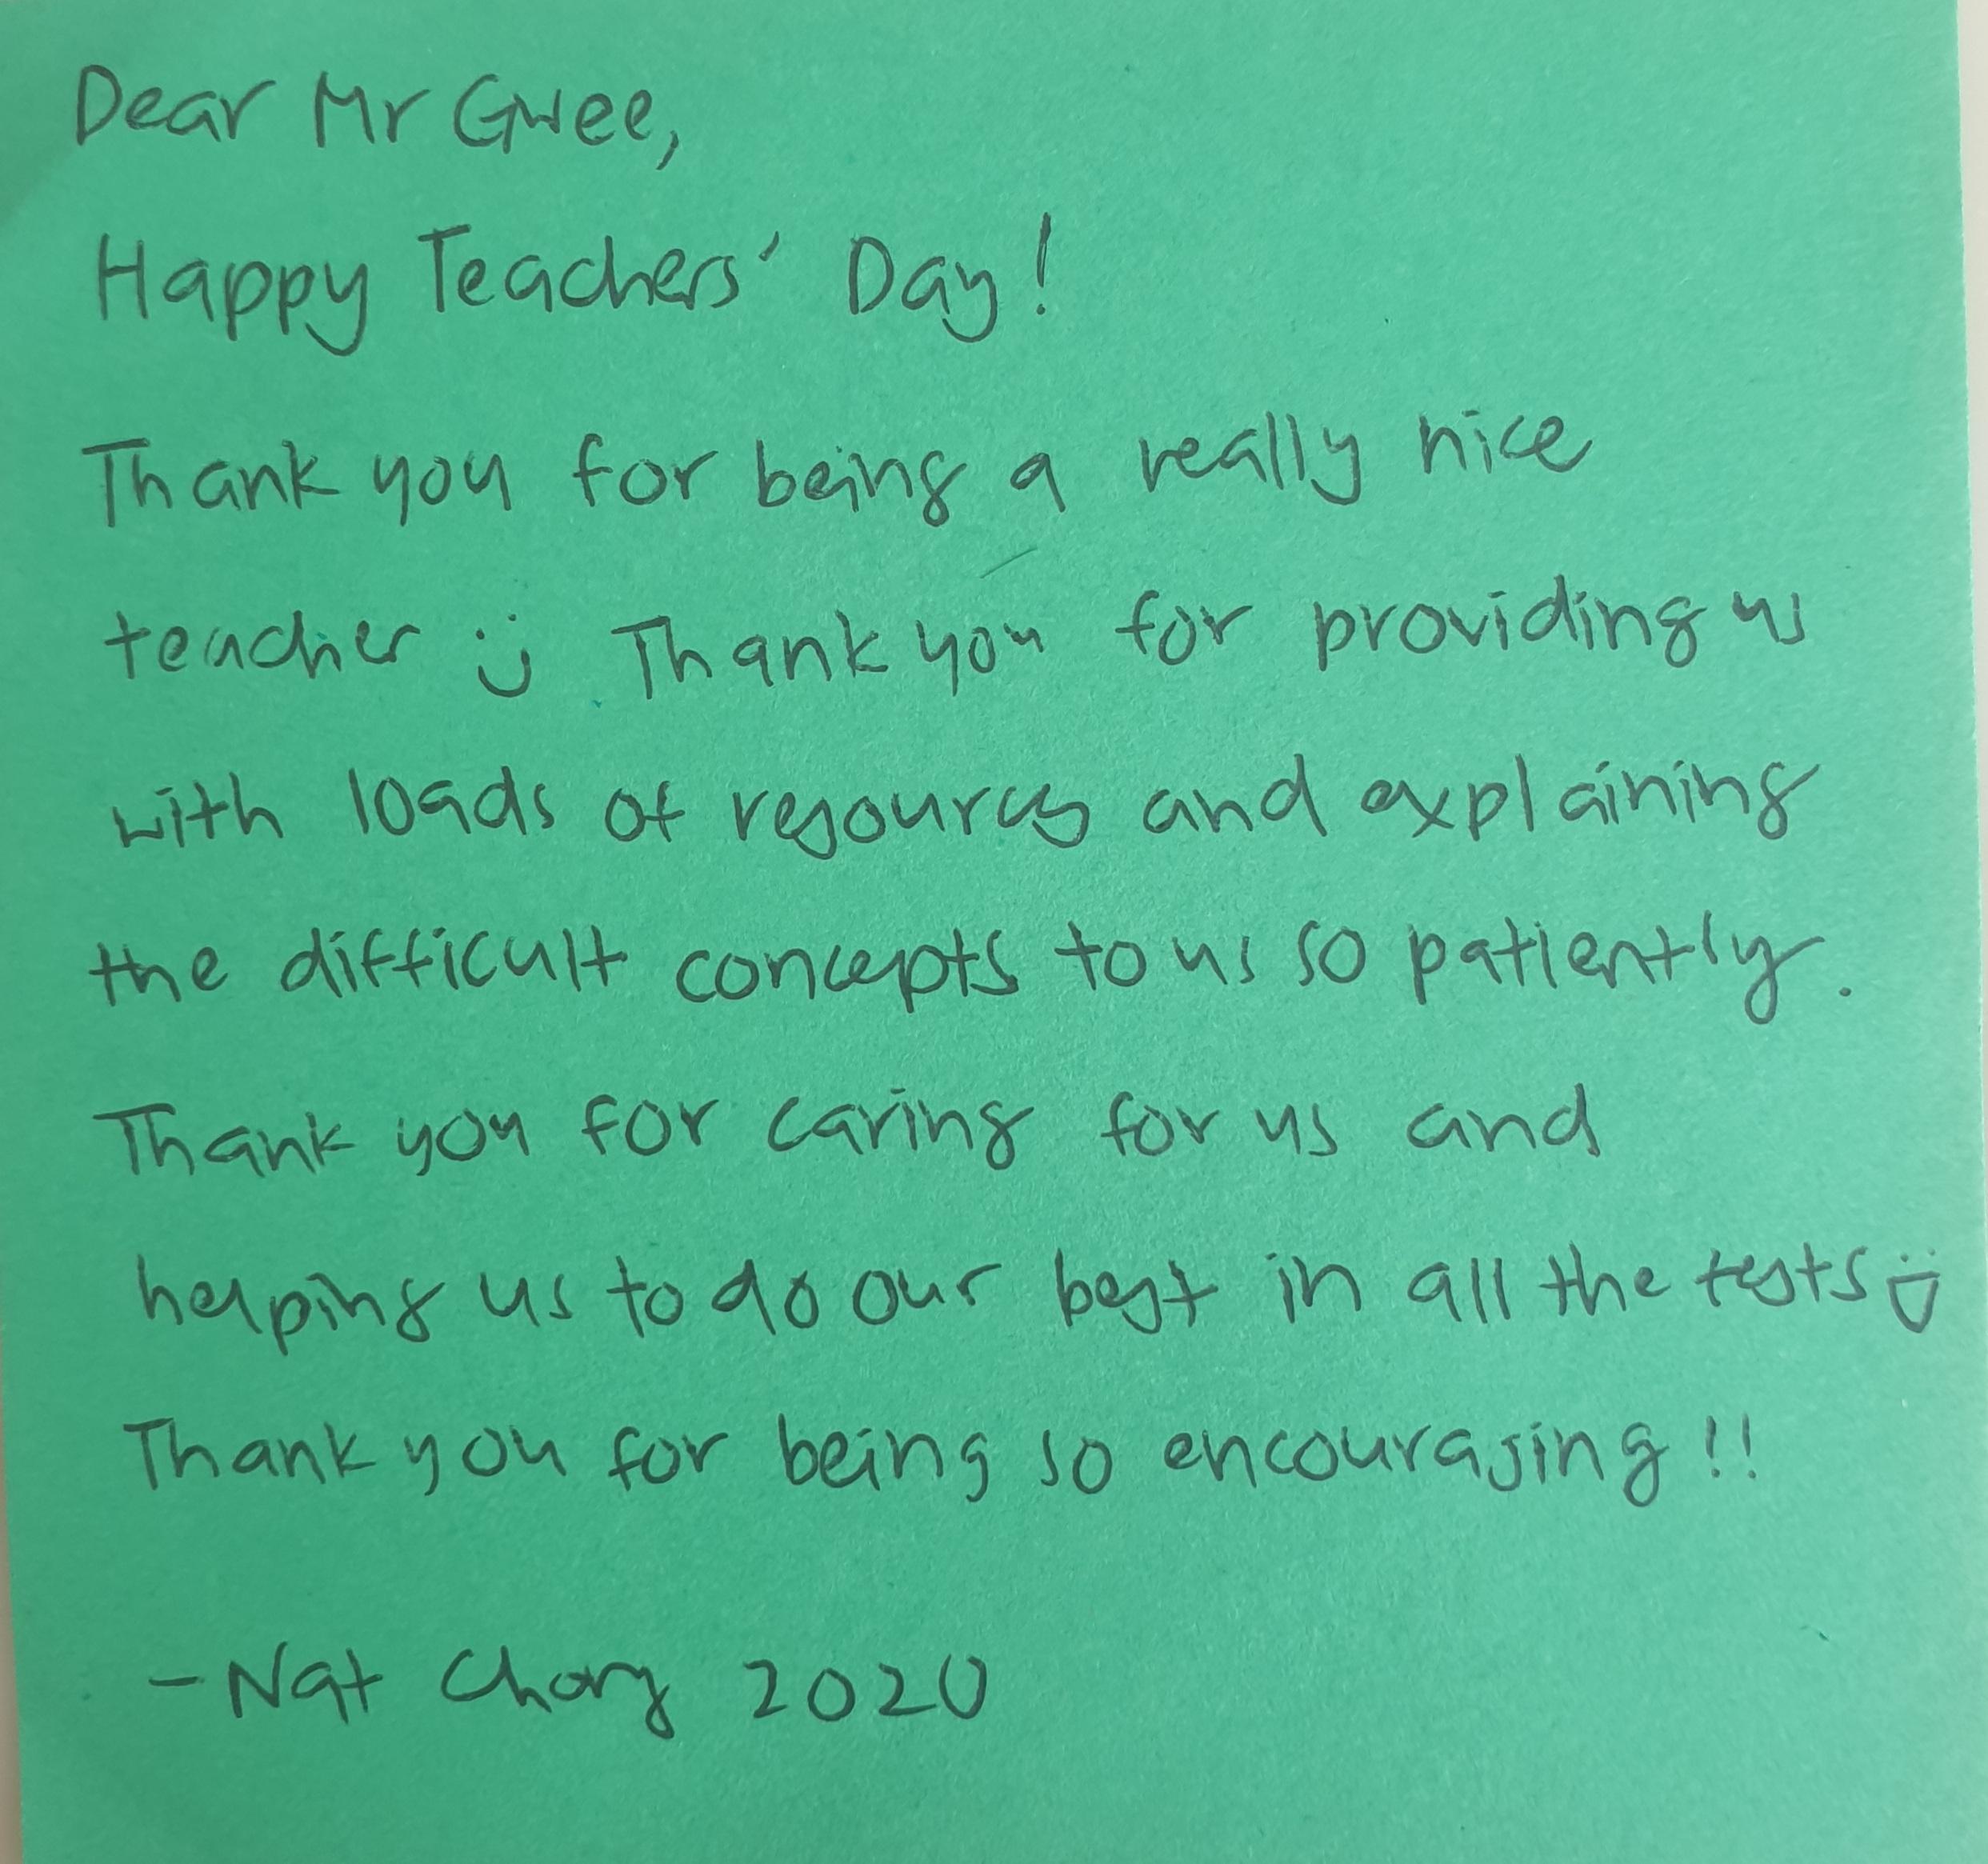 Dear Mr Gwee,
Happy Teachers' Day!
Thank you for being a really nice
teacher :) Thank you for providing us
with loads of resources and explaining
the difficult concepts to us so patiently.
Thank you for caring for us and
helping us to do our best in all the tests :D
Thank you for being so encouraging!!
- Nat Chong 2020